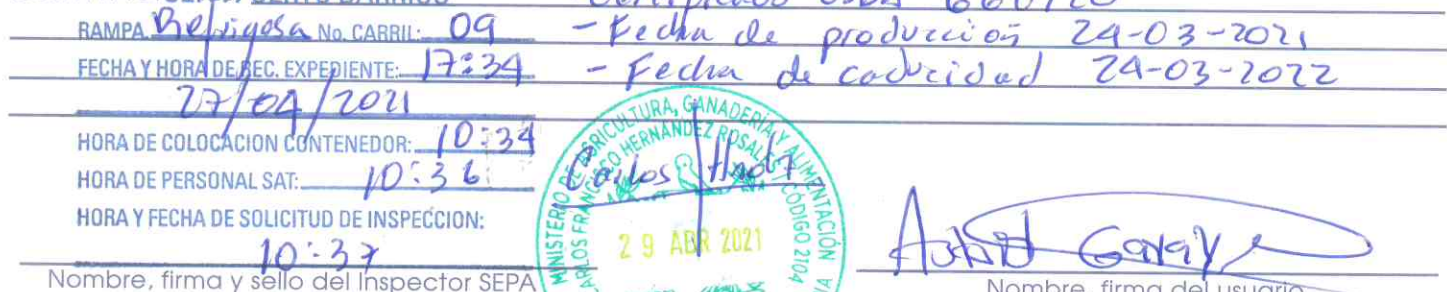 RAMPA. Refrigosa No. CARRIL: 09 - Fecha de producción 24-03-2021
FECHA Y HORA DE REC. EXPEDIENTE: 17:34 - Fecha de caducidad 24-03-2022
27/04/2021
HORA DE COLOCACION CONTENEDOR: 10:34
HORA DE PERSONAL SAT: 10:36
HORA Y FECHA DE SOLICITUD DE INSPECCION:
10:37
Nombre, firma y sello del Inspector SEPA
MINISTERIO DE AGRICULTURA, GANADERÍA Y ALIMENTACIÓN
CARLOS FRANCISCO HERNANDEZ ROSALES CÓDIGO 2104
Carlos Hndz
29 ABR 2021
Astrid Garay
Nombre, firma del usuario